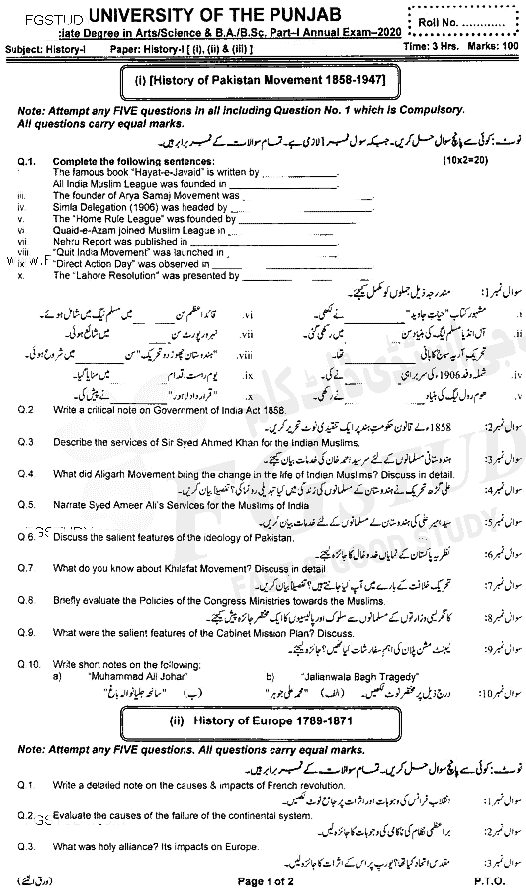 FGSTUD UNIVERSITY OF THE PUNJAB
:iate Degree in Arts/Science & B.A./B.Sc. Part–I Annual Exam–2020
Roll No. ............
Subject: History-I Paper: History-I [ (i), (ii) & (iii) ]
Time: 3 Hrs. Marks: 100
(i) [History of Pakistan Movement 1858-1947]
Note: Attempt any FIVE questions in all including Question No. 1 which is Compulsory.
All questions carry equal marks.
نوٹ: کوئی سے پانچ سوال حل کریں۔ جبکہ سوال نمبر 1 لازمی ہے۔ تمام سوالات کے نمبر برابر ہیں۔
Q.1. Complete the following sentences: (10x2=20)
The famous book "Hayat-e-Javaid" is written by
All India Muslim League was founded in
iii. The founder of Arya Samaj Movement was
iv. Simla Delegation (1906) was headed by
v. The "Home Rule League" was founded by
vi. Quaid-e-Azam joined Muslim League in
vii Nehru Report was published in
viii "Quit India Movement" was launched in
W W.F ix "Direct Action Day" was observed in
x. The "Lahore Resolution" was presented by
سوال نمبر 1: مندرجہ ذیل جملوں کو مکمل کیجئے۔
i مشہور کتاب "حیات جاوید" نے لکھی۔ vi. قائد اعظم سن میں مسلم لیگ میں شامل ہوئے۔
ii آل انڈیا مسلم لیگ کی بنیاد سن میں رکھی گئی۔ vii. نہرو رپورٹ سن میں شائع ہوئی۔
iii تحریک آریہ سماج کا بانی تھا۔ viii. "ہندوستان چھوڑ دو تحریک" سن میں شروع ہوئی۔
iv شملہ وفد 1906ء کی سربراہی نے کی۔ ix. یوم راست اقدام میں منایا گیا۔
v ہوم رول لیگ کی بنیاد نے رکھی۔ x. "قرارداد لاہور" نے پیش کی۔
Q.2 Write a critical note on Government of India Act 1858.
سوال نمبر 2: 1858ء کے قانون حکومت ہند پر ایک تنقیدی نوٹ تحریر کریں۔
Q.3 Describe the services of Sir Syed Ahmed Khan for the Indian Muslims.
سوال نمبر 3: ہندوستانی مسلمانوں کے لئے سرسید احمد خان کی خدمات بیان کیجئے۔
Q.4. What did Aligarh Movement bring the change in the life of Indian Muslims? Discuss in detail.
سوال نمبر 4: علی گڑھ تحریک نے ہندوستان کے مسلمانوں کی زندگی میں کیا تبدیلی رونما کی؟ تفصیلاً بیان کیجئے۔
Q.5. Narrate Syed Ameer Ali's Services for the Muslims of India
سوال نمبر 5: سید امیر علی کی ہندوستان کے مسلمانوں کے لئے خدمات بیان کیجئے۔
FGSTUD
Q.6. Discuss the salient features of the ideology of Pakistan.
سوال نمبر 6: نظریہ پاکستان کے نمایاں خدوخال کا جائزہ لیجئے۔
Q.7 What do you know about Khilafat Movement? Discuss in detail
سوال نمبر 7: تحریک خلافت کے بارے میں آپ کیا جانتے ہیں؟ تفصیلاً بیان کریں۔
Q.8. Briefly evaluate the Policies of the Congress Ministries towards the Muslims.
سوال نمبر 8: کانگریسی وزارتوں کے مسلمانوں سے سلوک اور پالیسیوں کا ایک مختصر جائزہ پیش کیجئے۔
Q.9. What were the salient features of the Cabinet Mission Plan? Discuss.
سوال نمبر 9: کیبنٹ مشن پلان کی اہم سفارشات کیا تھیں؟ جائزہ لیجئے۔
Q 10. Write short notes on the following:
a) "Muhammad Ali Johar" b) "Jalianwala Bagh Tragedy"
سوال نمبر 10: درج ذیل پر مختصر نوٹ لکھیں۔ (الف) "محمد علی جوہر" (ب) "سانحہ جلیانوالہ باغ"
(ii) History of Europe 1789-1871
Note: Attempt any FIVE questions. All questions carry equal marks.
نوٹ: کوئی سے پانچ سوال حل کریں۔ تمام سوالات کے نمبر برابر ہیں۔
Q 1. Write a detailed note on the causes & impacts of French revolution.
سوال نمبر 1: انقلاب فرانس کی وجوہات اور اثرات پر جامع نوٹ لکھیں۔
Q.2. Evaluate the causes of the failure of the continental system.
سوال نمبر 2: براعظمی نظام کی ناکامی کی وجوہات کا جائزہ لیں۔
Q.3. What was holy alliance? Its impacts on Europe.
سوال نمبر 3: مقدس اتحاد کیا تھا؟ یورپ پر اس کے اثرات کا جائزہ لیں۔
(ورق الٹئے) Page 1 of 2 P.T.O.